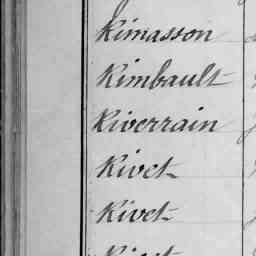 Rimasson
Rimbault
Riverrain
Rivet
Rivet
Rivet